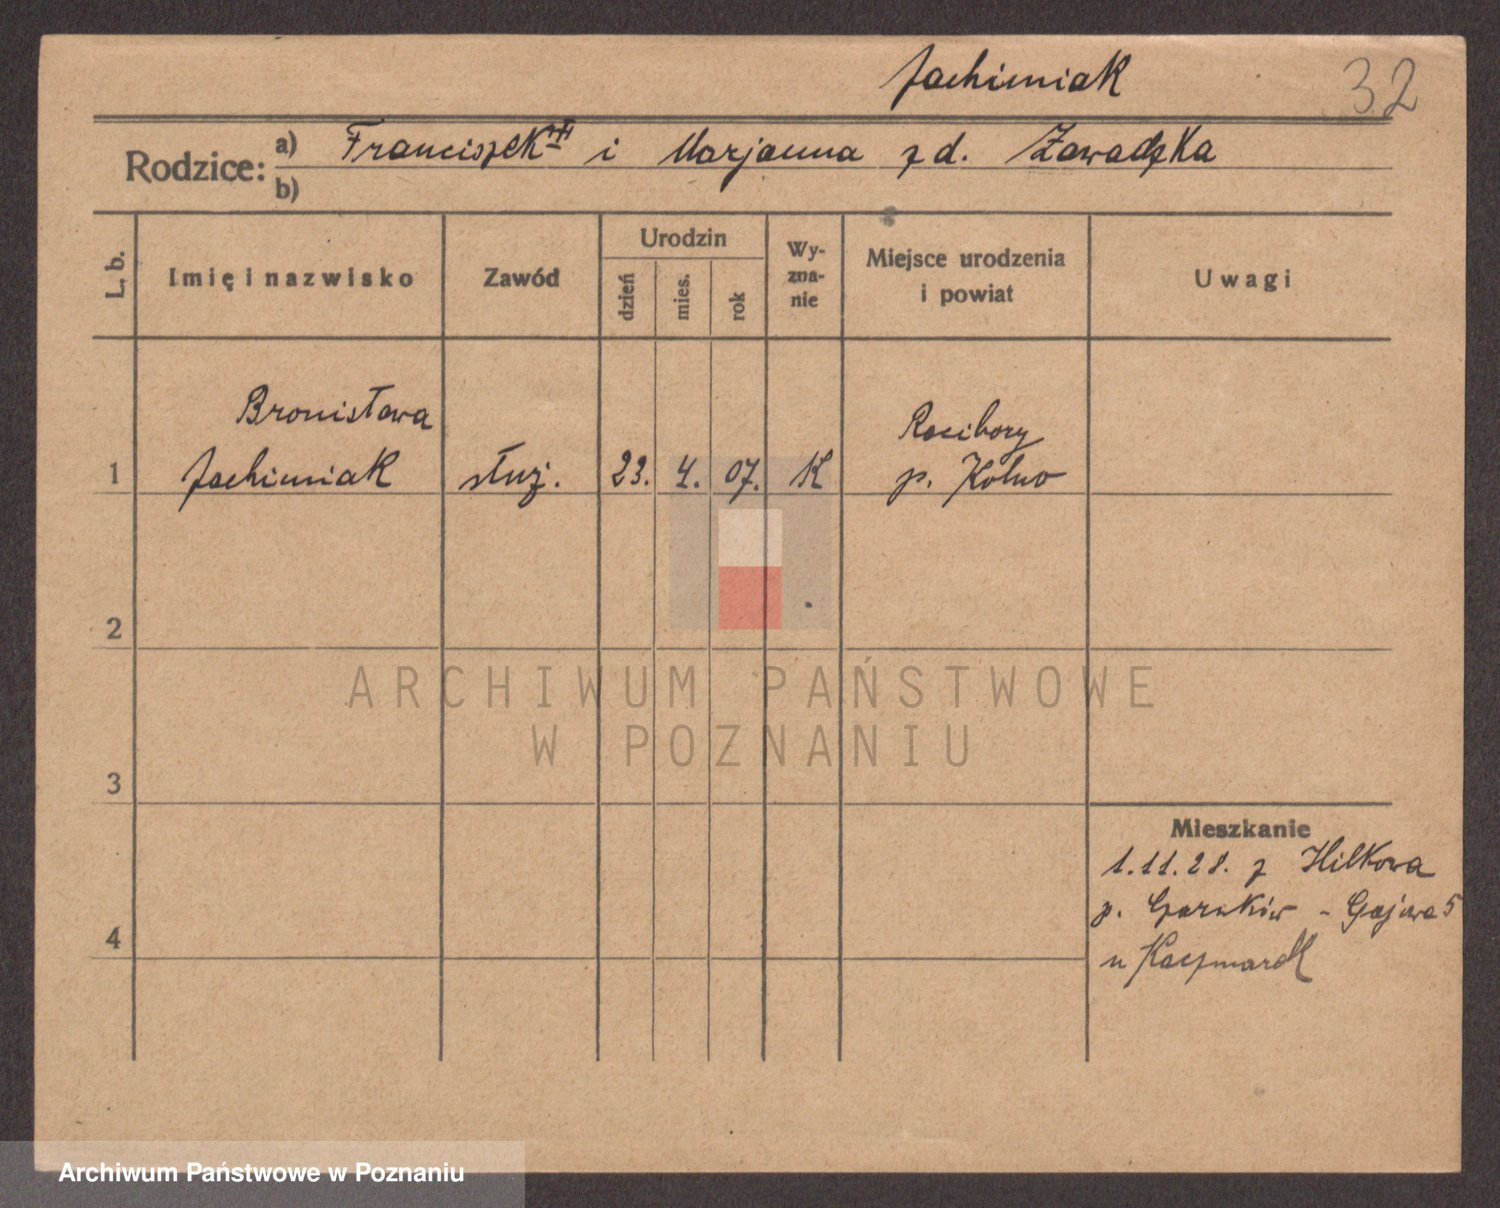 Jachimiak
32
Rodzice: a) Franciszek i Marjanna z d. Zawadzka
b)
L. b.
Imię i nazwisko
Zawód
Urodzin
dzień
mies.
rok
Wy-
zna-
nie
Miejsce urodzenia
i powiat
Uwagi
Bronisława
1 Jachimiak służ. 23. 4. 07. K
Racibory
p. Kolno
2
3
4
ARCHIWUM PAŃSTWOWE
W POZNANIU
Mieszkanie
1.11.28. z Hilkowa
p. Czarnków - Gajowa 5
u Kaczmarek
Archiwum Państwowe w Poznaniu